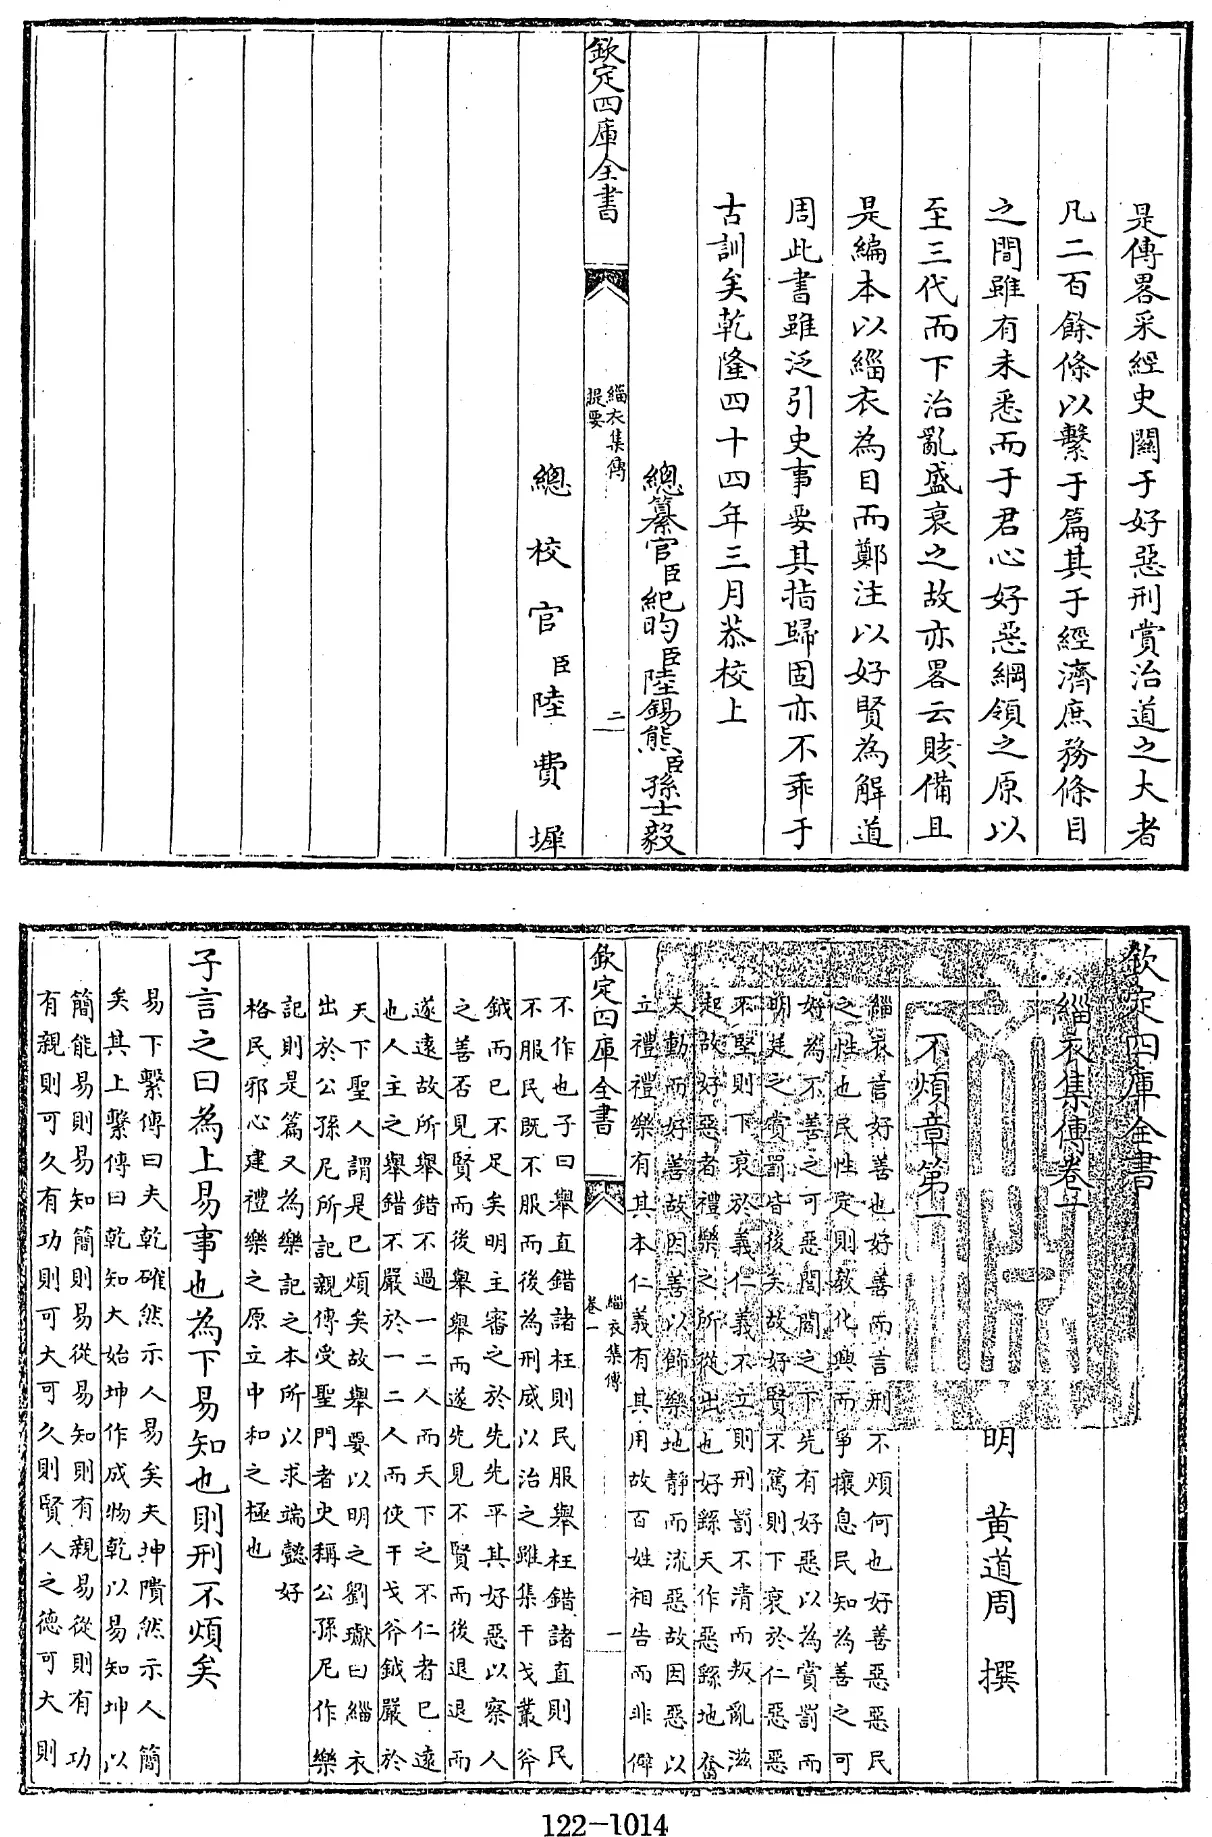 是傳畧采經史關于好惡刑賞治道之大者
凡二百餘條以繫于篇其于經濟庶務條目
之間雖有未悉而于君心好惡綱領之原以
至三代而下治亂盛衰之故亦畧云賅備且
是編本以緇衣為目而鄭注以好賢為解道
周此書雖泛引史事要其指歸固亦不乖于
古訓矣乾隆四十四年三月恭校上
總纂官臣紀昀臣陸錫熊臣孫士毅
欽定四庫全書
緇衣集傳
提要
二
總校官臣陸費墀
欽定四庫全書
緇衣集傳卷一
明 黃道周 撰
不煩章第一
緇衣言好善也好善而言刑不煩何也好善惡惡民
之性也民性定則教化興而爭攘息民知為善之可
好為不善之可惡閭閻之下先有好惡以為賞罰而
明廷之賞罰皆後矣故好賢不篤則下衰於仁惡惡
不堅則下衰於義仁義不立則刑罰不清而叛亂滋
起故好惡者禮樂之所從出也好繇天作惡繇地奮
天動而好善故因善以飾樂地靜而流惡故因惡以
立禮禮樂有其本仁義有其用故百姓相告而非僻
欽定四庫全書
緇衣集傳
卷一
一
不作也子曰舉直錯諸枉則民服舉枉錯諸直則民
不服民既不服而後為刑威以治之雖集干戈叢斧
鉞而已不足矣明主審之於先先平其好惡以察人
之善否見賢而後舉舉而遂先見不賢而後退退而
遂遠故所舉錯不過一二人而天下之不仁者已遠
也人主之舉錯不嚴於一二人而使干戈斧鉞嚴於
天下聖人謂是已煩矣故舉要以明之劉瓛曰緇衣
出於公孫尼所記親傳受聖門者史稱公孫尼作樂
記則是篇又為樂記之本所以求端懿好
格民邪心建禮樂之原立中和之極也
子言之曰為上易事也為下易知也則刑不煩矣
易下繫傳曰夫乾確然示人易矣夫坤隤然示人簡
矣其上繫傳曰乾知大始坤作成物乾以易知坤以
簡能易則易知簡則易從易知則有親易從則有功
有親則可久有功則可大可久則賢人之德可大則
122-1014